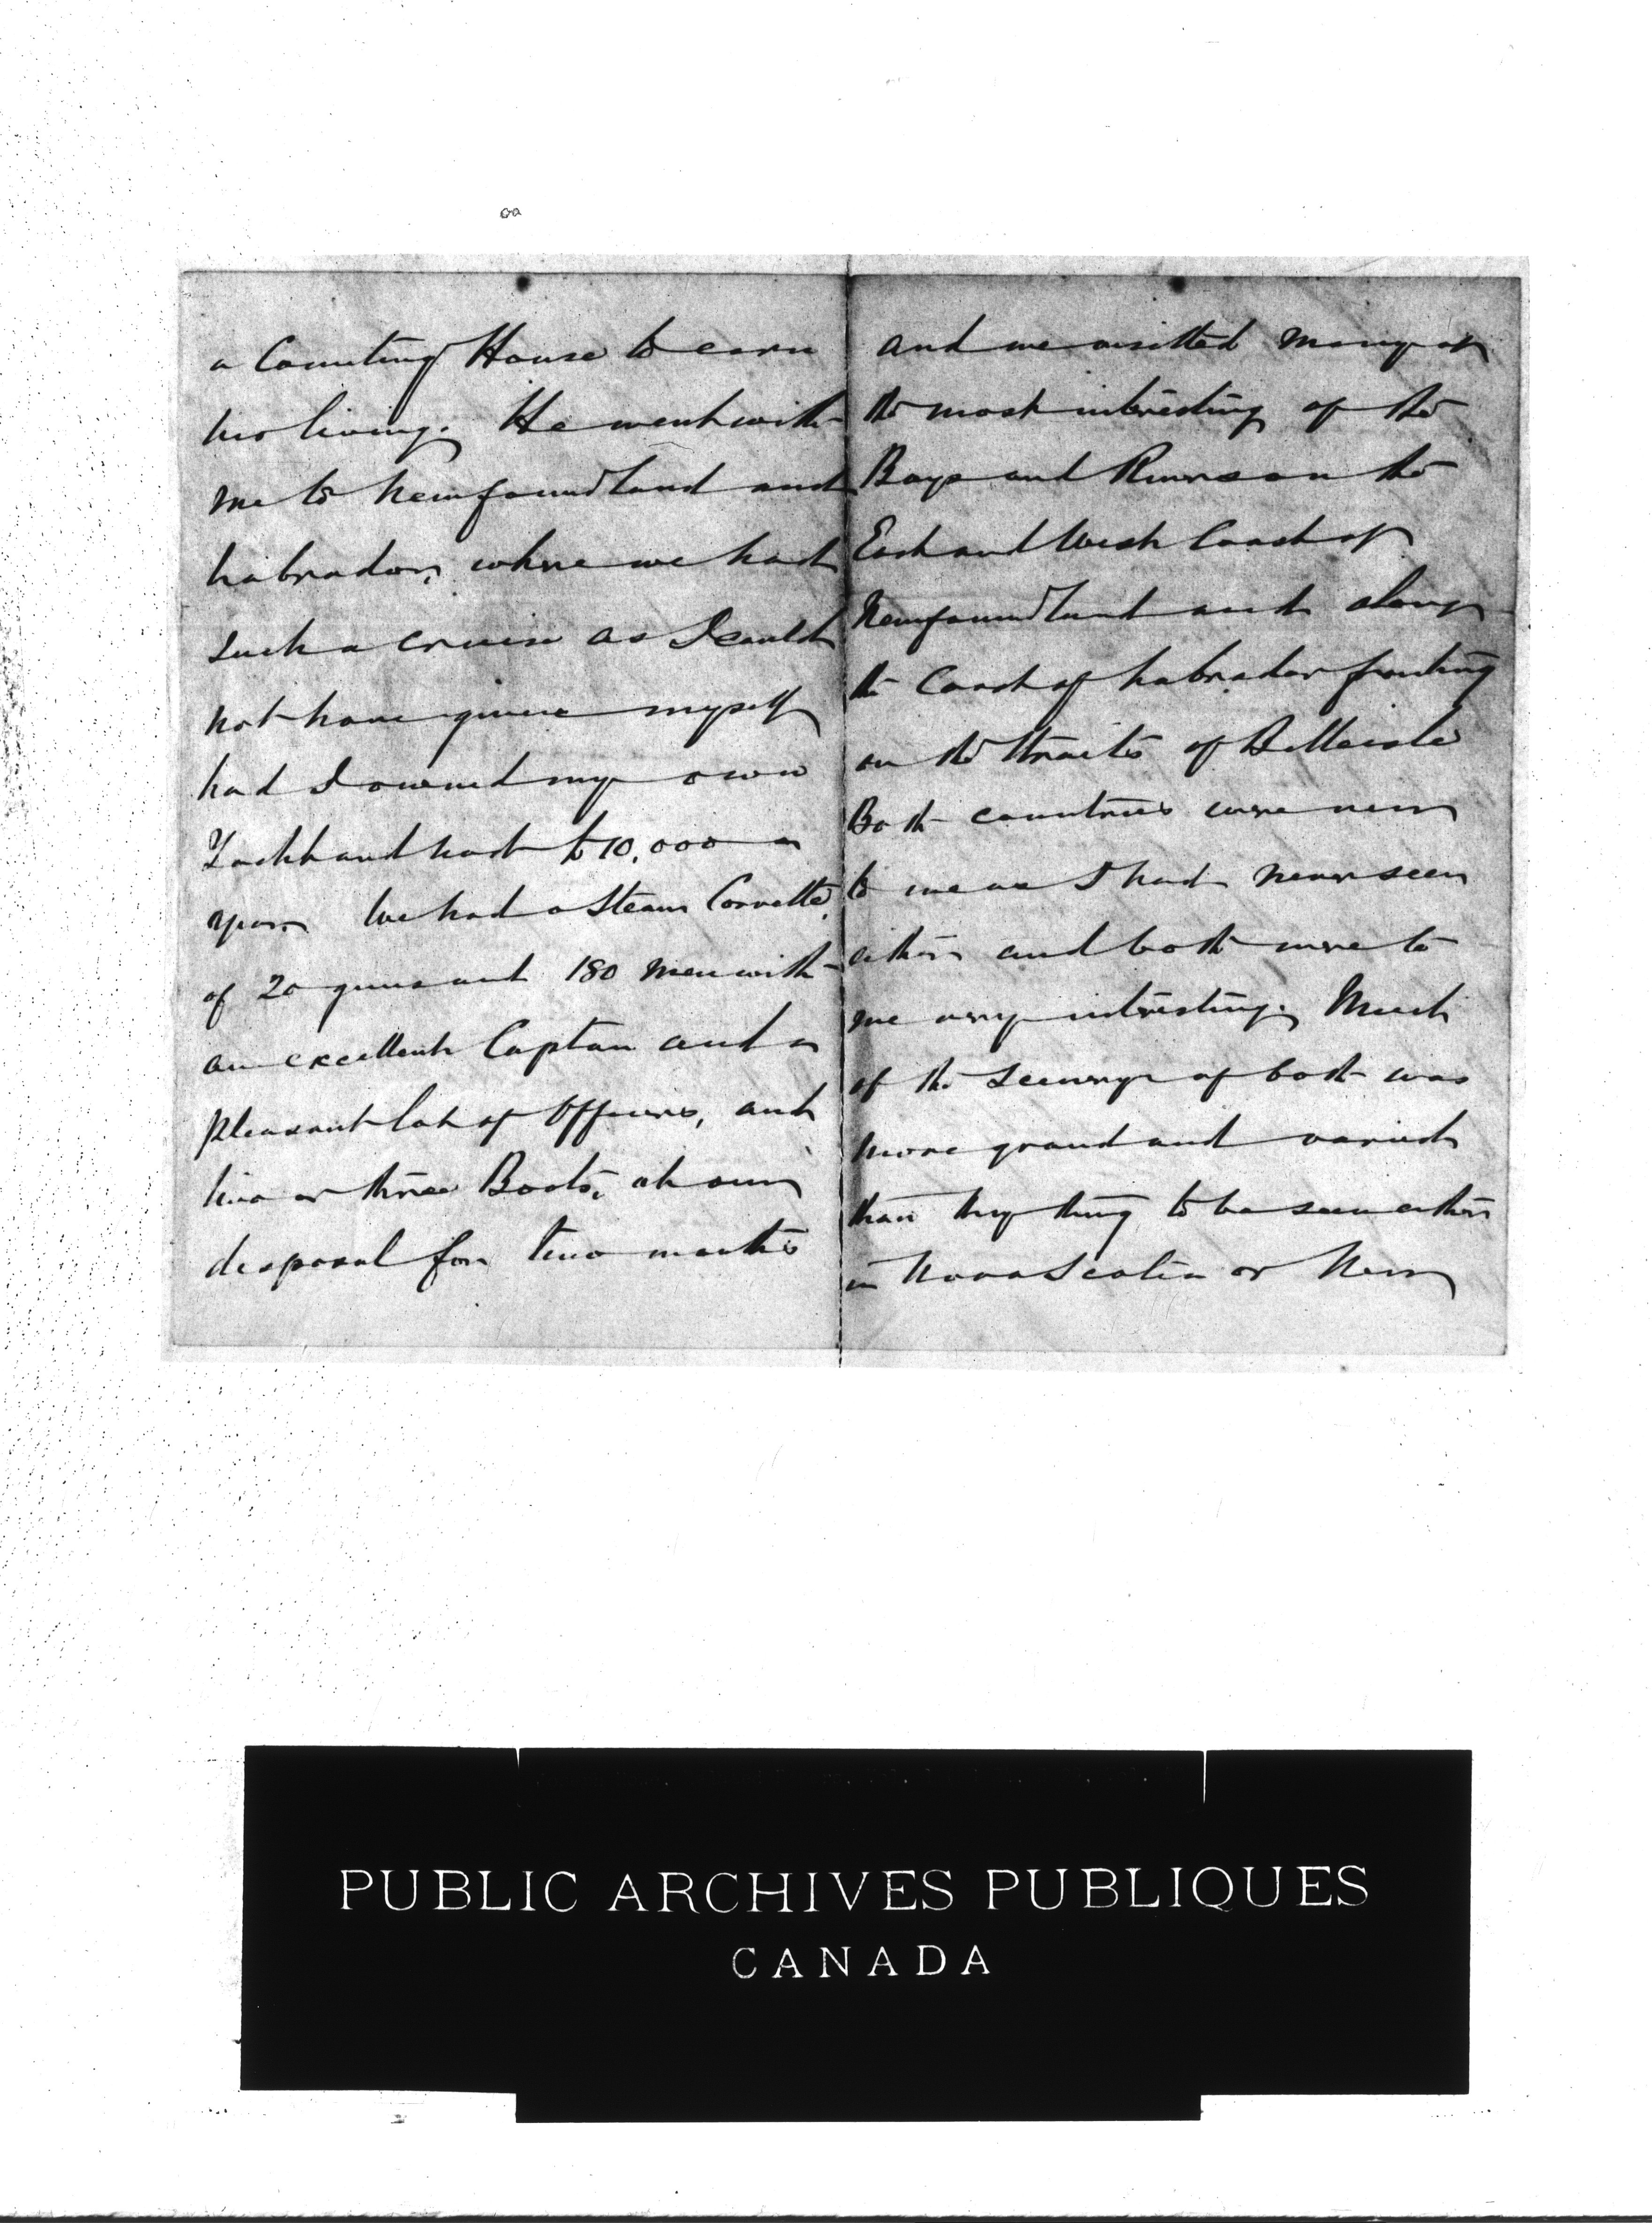 a Counting House to earn
his living. He went with
me to Newfoundland and
Labrador, where we had
such a cruise as I could
not have given myself
had I owned my own
Yacht and had £10,000 a
year. We had a Steam Corvette,
of 20 guns and 180 men with
an excellent Captain and a
pleasant lot of Officers, and
two or three Boats, at our
disposal for two months
and we visited many of
the most interesting of the
Bays and Rivers on the
East and West Coast of
Newfoundland and along
the Coast of Labrador fronting
on the Straits of Belleisle
Both countries were new
to me as I had never seen
either and both were to
me very interesting. Much
of the Scenery of both was
more grand and varied
than any thing to be seen either
in Nova Scotia or New
PUBLIC ARCHIVES PUBLIQUES
CANADA